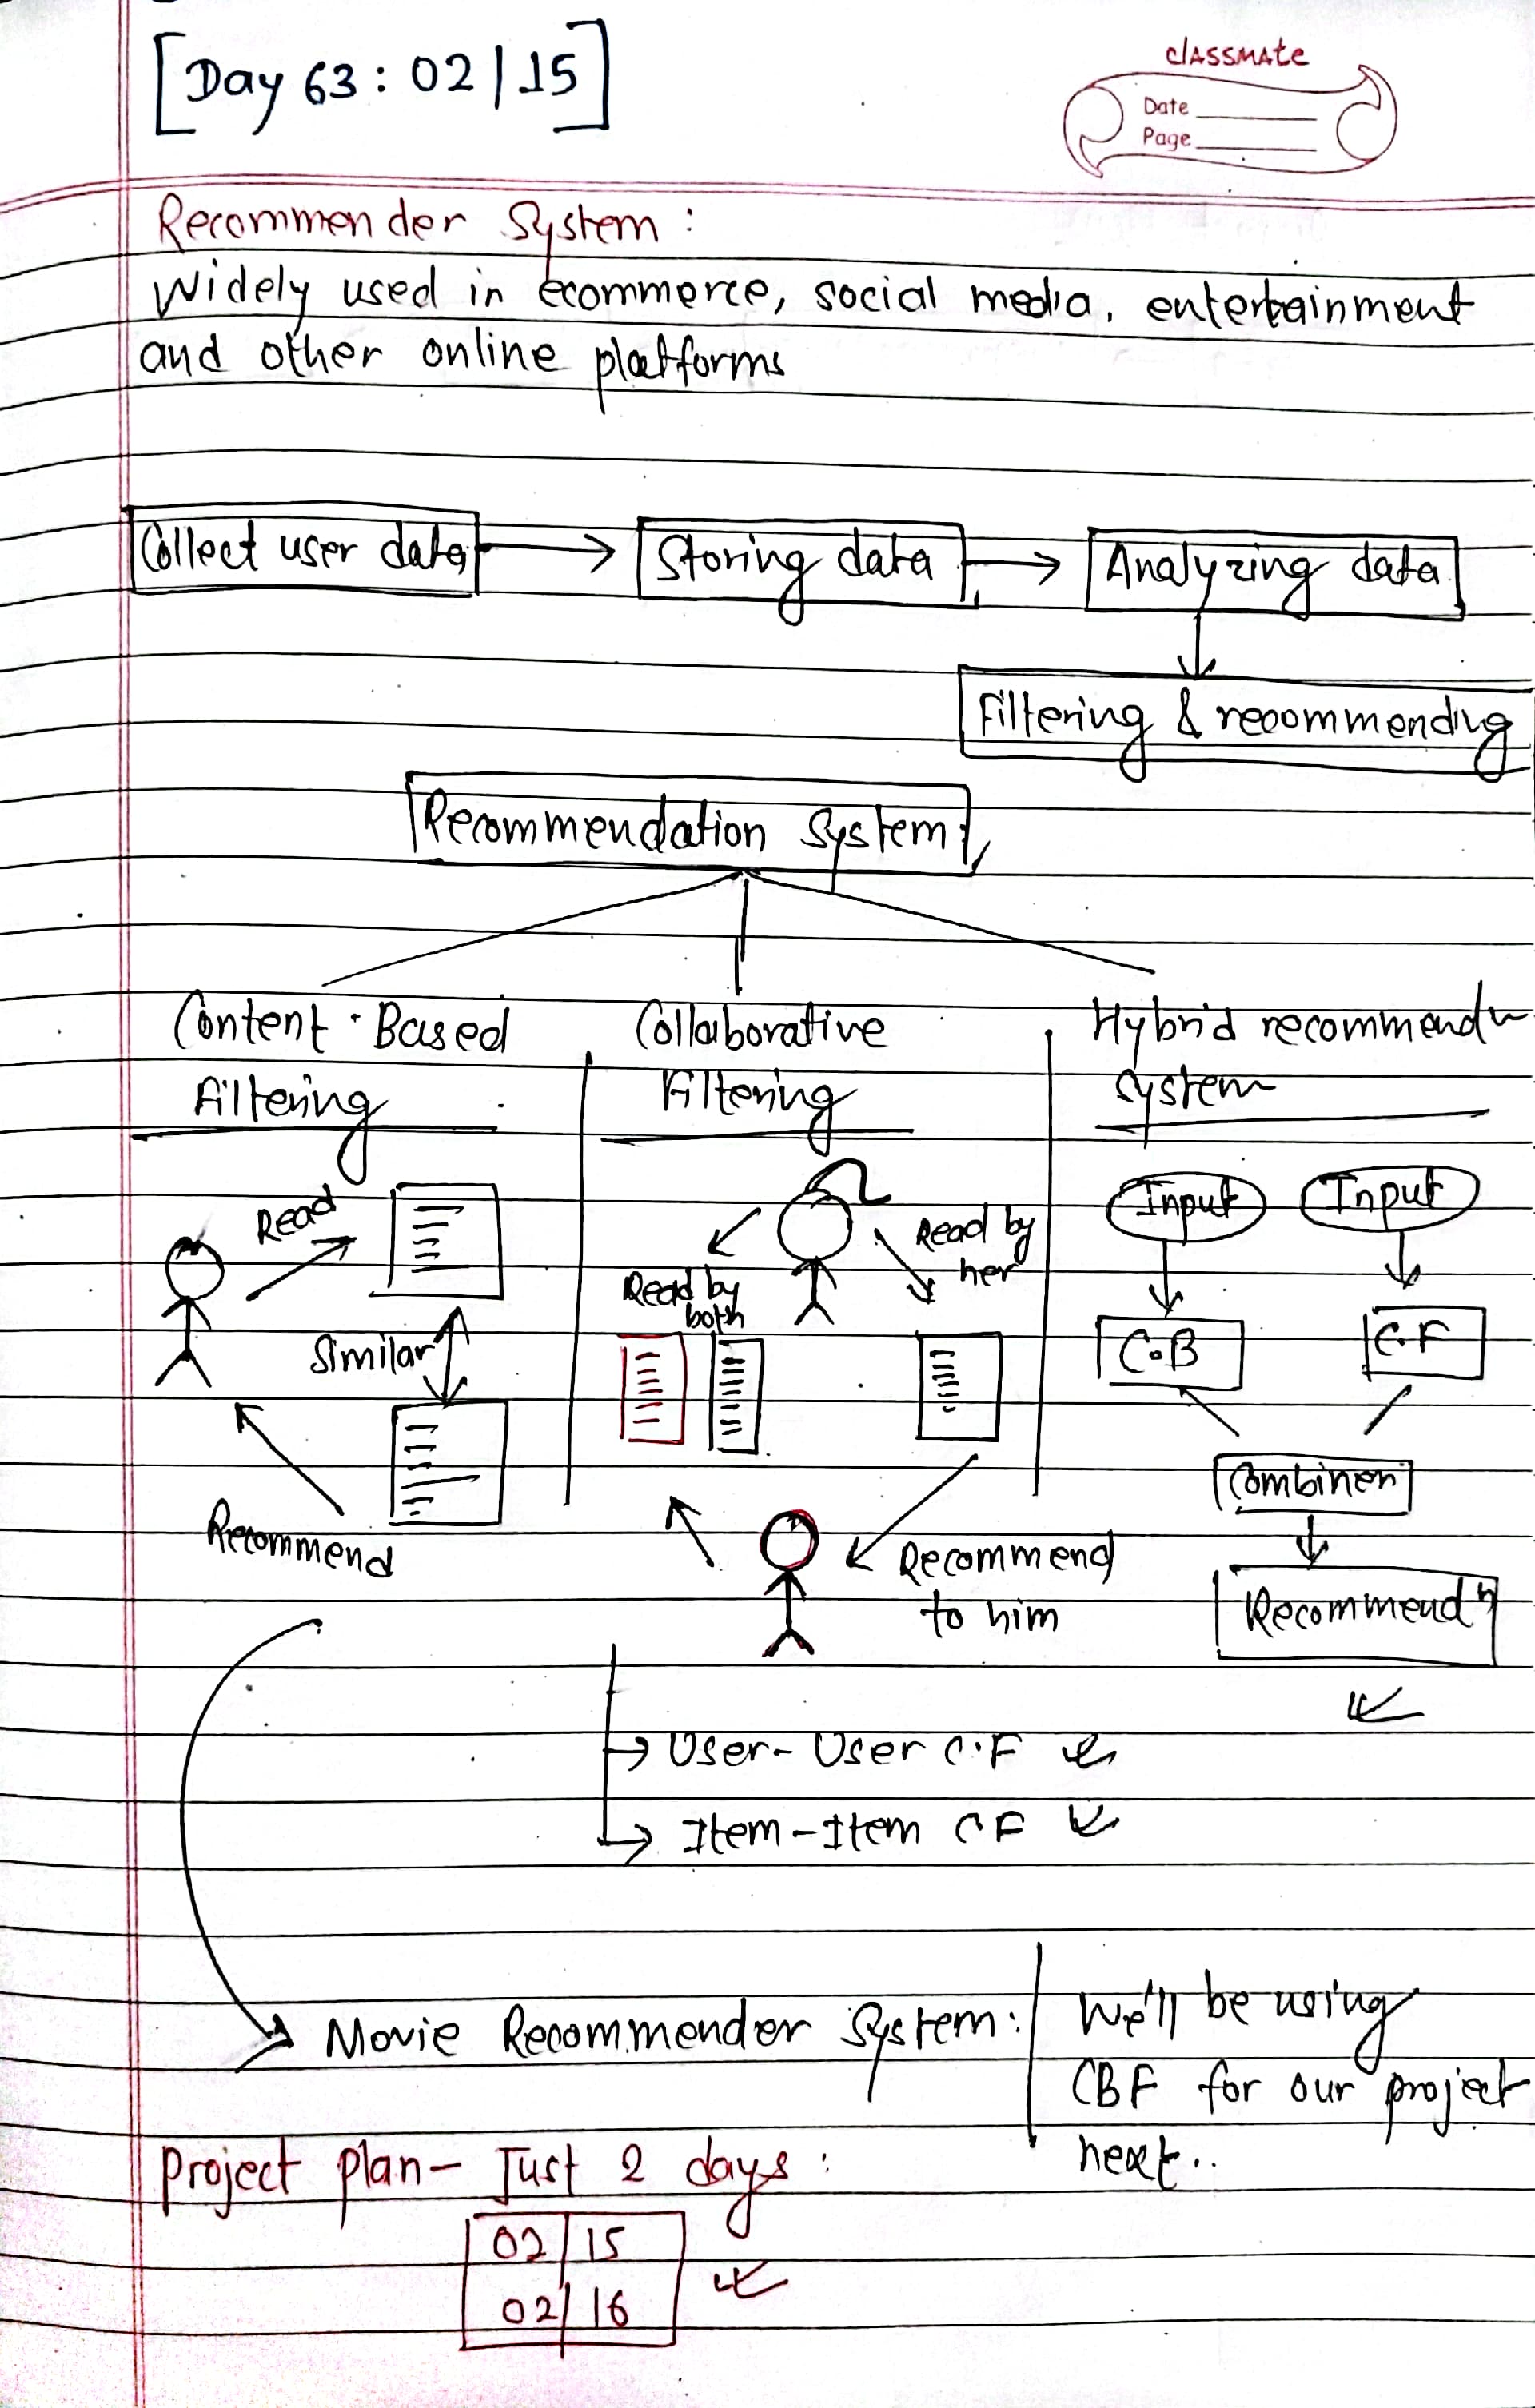 [Day 63 : 02/15]
classmate
Date
Page
Recommender System :
Widely used in ecommerce, social media, entertainment
and other online platforms
Collect user data → Storing data → Analyzing data
Filtering & recommending
Recommendation System
Content-Based
Filtering
Collaborative
Filtering
Hybrid recommendr
System
Read
Similar
Recommend
Read by
her
Read by
both
Recommend
to him
Input Input
C.B C.F
Combiner
Recommendn
→ User-User C.F
→ Item-Item CF
→ Movie Recommender System :
We'll be using
CBF for our project
next..
Project plan - Just 2 days :
02/15
02/16